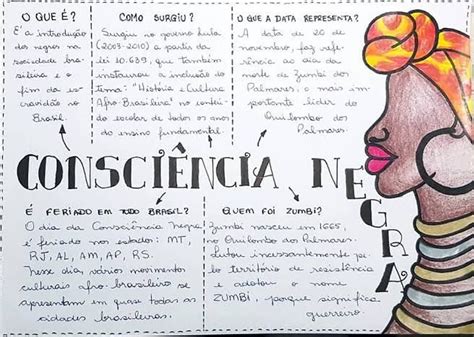 O QUE É?
É a introdução
dos negros na
sociedade bra-
sileira e o
fim da es-
cravidão no
Brasil.
COMO SURGIU?
Surgiu no governo Lula
(2003-2010) a partir da
lei 10.639, que também
instaurou a inclusão do
tema: "História e Cultura
Afro Brasileira" no conteú-
do escolar de todos os anos
do ensino fundamental.
O QUE A DATA REPRESENTA?
A data de 20 de
novembro, faz refe-
rência ao dia da
morte de Zumbi dos
Palmares, o mais im-
portante líder do
Quilombo dos
Palmares.
CONSCIÊNCIA NEGRA
É FERIADO EM TODO BRASIL?
O dia da Consciência Negra
é feriado nos estados: MT,
RJ, AL, AM, AP, RS.
Nesse dia vários movimentos
culturais afro-brasileiro se
apresentam em quase todas as
cidades brasileiras.
QUEM FOI ZUMBI?
Zumbi nasceu em 1655,
no Quilombo dos Palmares.
Lutou incessantemente pe-
lo território de resistência
e adotou o nome
ZUMBI, porque significa
guerreiro.